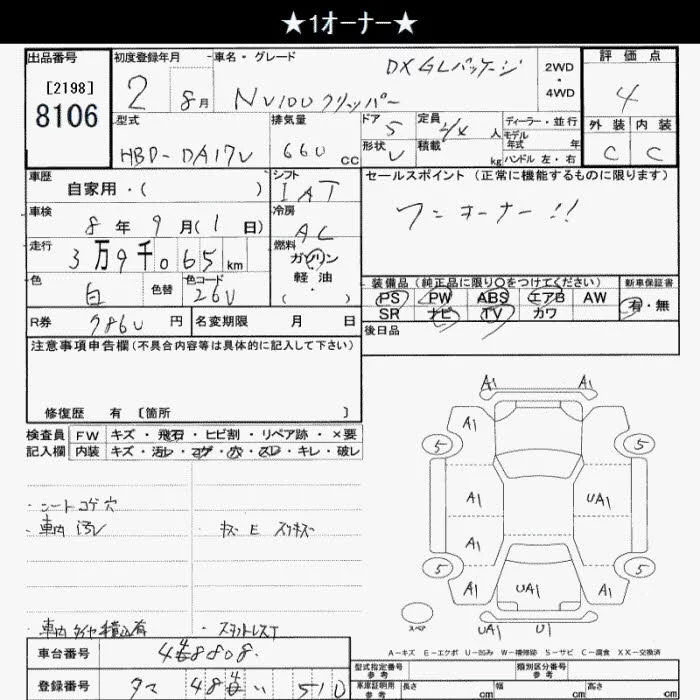 ★1オーナー★
出品番号
[2198]
8106
初度登録年月
2 8月
車名・グレード
DX GLパッケージ
NV100クリッパー
2WD
・
4WD
評価点
4
外装 内装
C C
型式
HBD-DA17V
排気量
660 cc
ドア 5
形状 V
定員 人
積載 kg
ディーラー・並行
モデル年式 年
ハンドル 左・右
車歴
自家用・( )
シフト
IAT
車検
8年9月(1日)
冷房
AC
走行
3万9千065km
燃料
ガソリン
軽油
(・)
色
白
色替
色コード
26U
R券 円
名変期限 月 日
セールスポイント(正常に機能するものに限ります)
ワンオーナー!!
装備品(純正品に限り○をつけてください)
新車保証書
PS PW ABS エアB AW
有・無
SR ナビ TV カワ
後日品
注意事項申告欄(不具合内容等は具体的に記入して下さい)
修復歴 有 〔箇所 〕
検査員 FW キズ・飛石・ヒビ割・リペア跡・×要
記入欄 内装 キズ・汚レ・コゲ・穴・スレ・キレ・破レ
・シートコゲ穴
・車内汚レ
・キズE スリキズ
・車内タイヤ積込有
A1 A1
A1
5 5
A1 UA1
A1
5 5
A1 UA1 A1
スペア
UA1 U1
A-キズ E-エクボ U-凹み W-補修跡 S-サビ C-腐食 XX-交換済
車台番号
登録番号
型式指定番号
参考
類別区分番号
参考
車庫証明用
参考
長さ cm 幅 cm 高さ cm